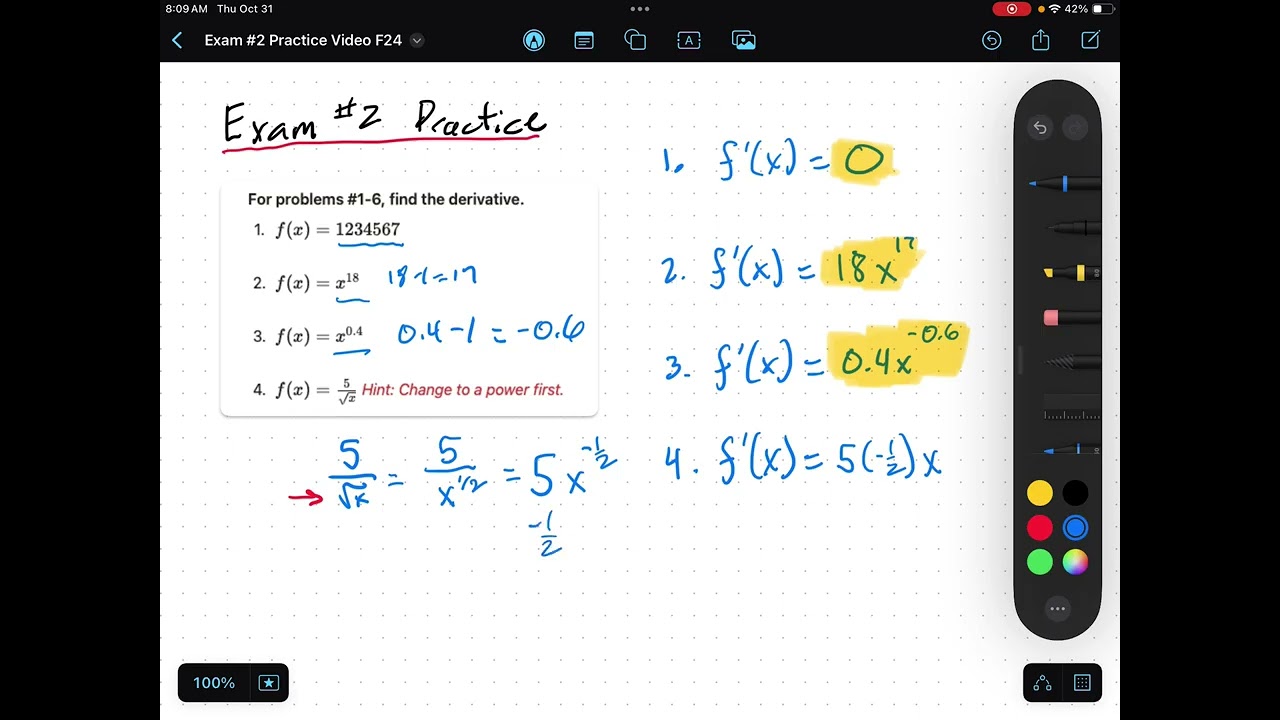 8:09 AM Thu Oct 31
42%
Exam #2 Practice Video F24
Exam #2 Practice
For problems #1-6, find the derivative.
1. f(x) = 1234567
2. f(x) = x^18 18-1=17
3. f(x) = x^0.4 0.4-1 = -0.6
4. f(x) = 5/√x Hint: Change to a power first.
5/√x = 5/x^1/2 = 5x^-1/2
-1/2
1. f'(x) = 0
2. f'(x) = 18x^17
3. f'(x) = 0.4x^-0.6
4. f'(x) = 5(-1/2)x
100%